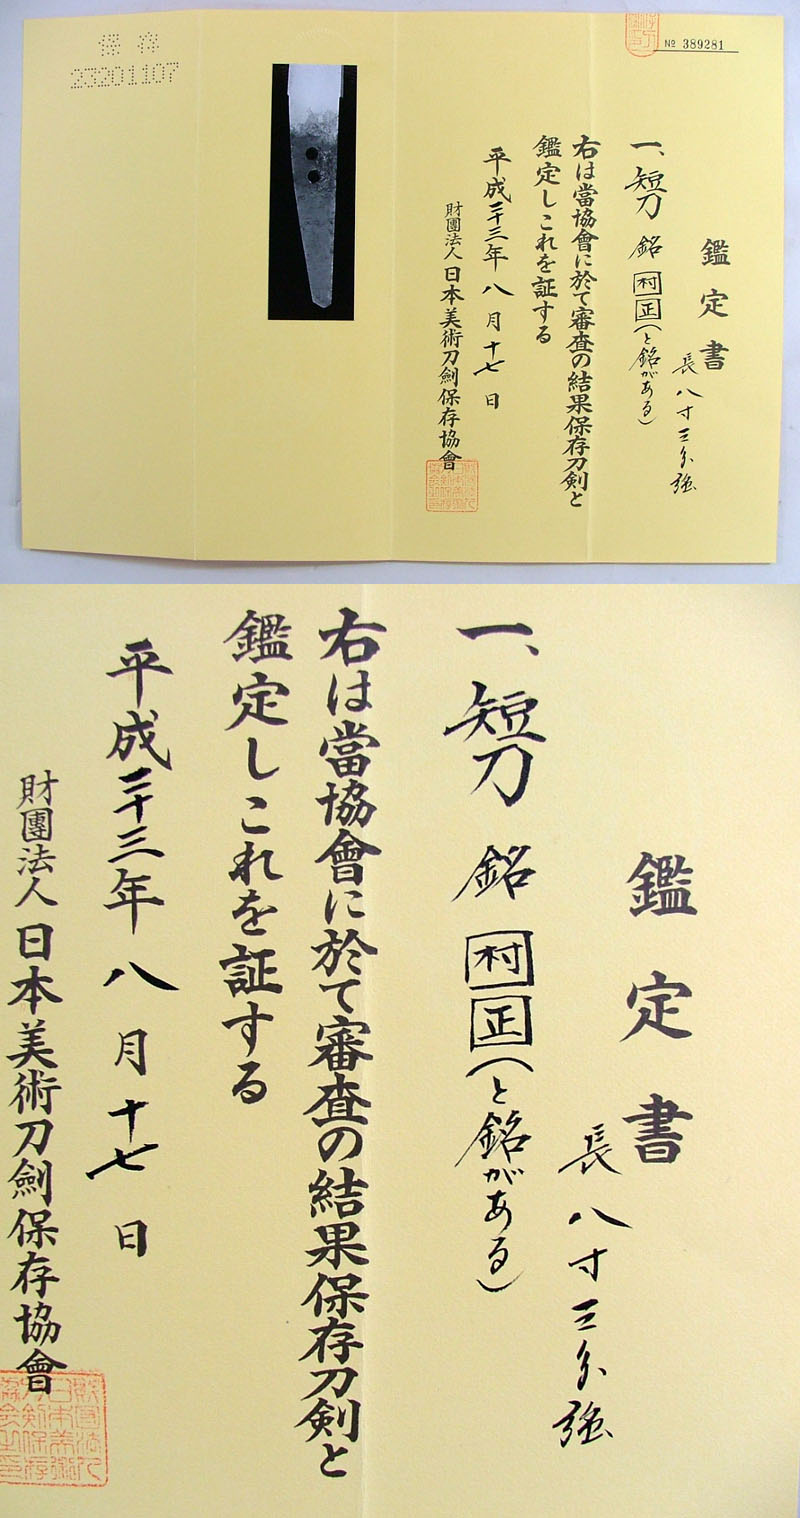 保存
23201107
№ 389281
鑑定書
長 八寸三分強
一、短刀 銘 村正(と銘がある)
右は當協會に於て審査の結果保存刀剣と
鑑定しこれを証する
平成二十三年 八月十七日
財團法人 日本美術刀劍保存協會
鑑定書
長 八寸三分強
一、短刀 銘 村正(と銘がある)
右は當協會に於て審査の結果保存刀剣と
鑑定しこれを証する
平成二十三年 八月十七日
財團法人 日本美術刀劍保存協會